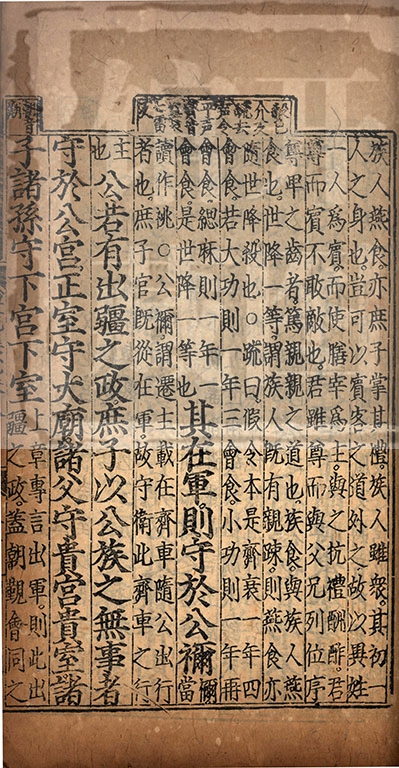 族人燕食。亦庶子掌其禮。族人雖衆。其初一
人之身也。豈可以賓客之道外之。故以異姓
一人爲賓。而使膳宰爲主。與之抗禮酬酢。君
尊而賓不敢敵也。君雖尊。而與父兄列位序
尊卑之齒者。篤親親之道也。族食。與族人燕
食也。世降一等。謂族人既有親踈。則燕食亦
隨世降殺也。○疏曰。假令本是齊衰一年四
會食。若大功則一年三會食。小功則一年再
會食。緦麻則一年一
會食。是世降一等也
其在軍。則守於公禰
禰當
讀作祧。○公禰。謂遷主載在齊車隨公出行
者也。庶子官既從在軍。故守衛此齊車之行
主
也
公若有出疆之政。庶子以公族之無事者
守於公宮。正室守大廟。諸父守貴宮貴室。諸
子諸孫守下宮下室
上章專言出軍。則此出
疆之政。蓋朝覲會同之
平声
七雷
反